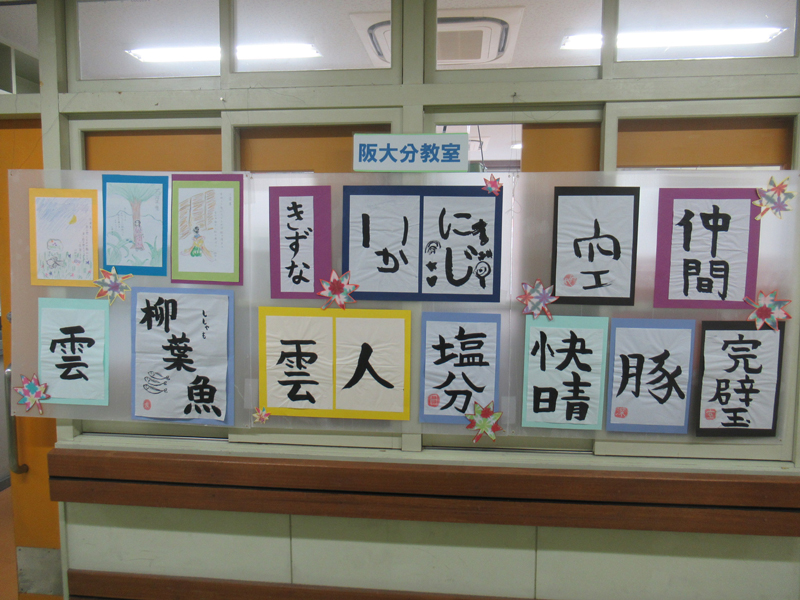 阪大分教室
きずな
いか
にじ
空
仲間
雲
ししゃも
柳葉魚
雲
人
塩分
快晴
豚
完璧